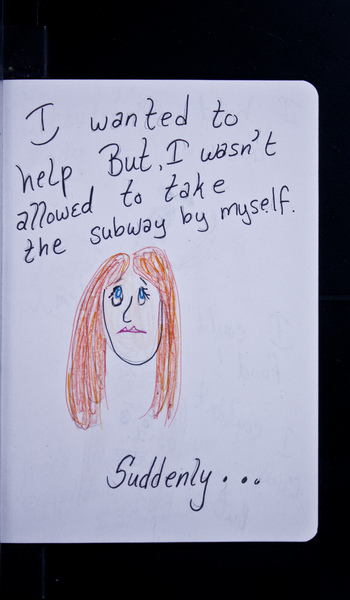 I wanted to
help But, I wasn't
allowed to take
the subway by myself.
Suddenly...